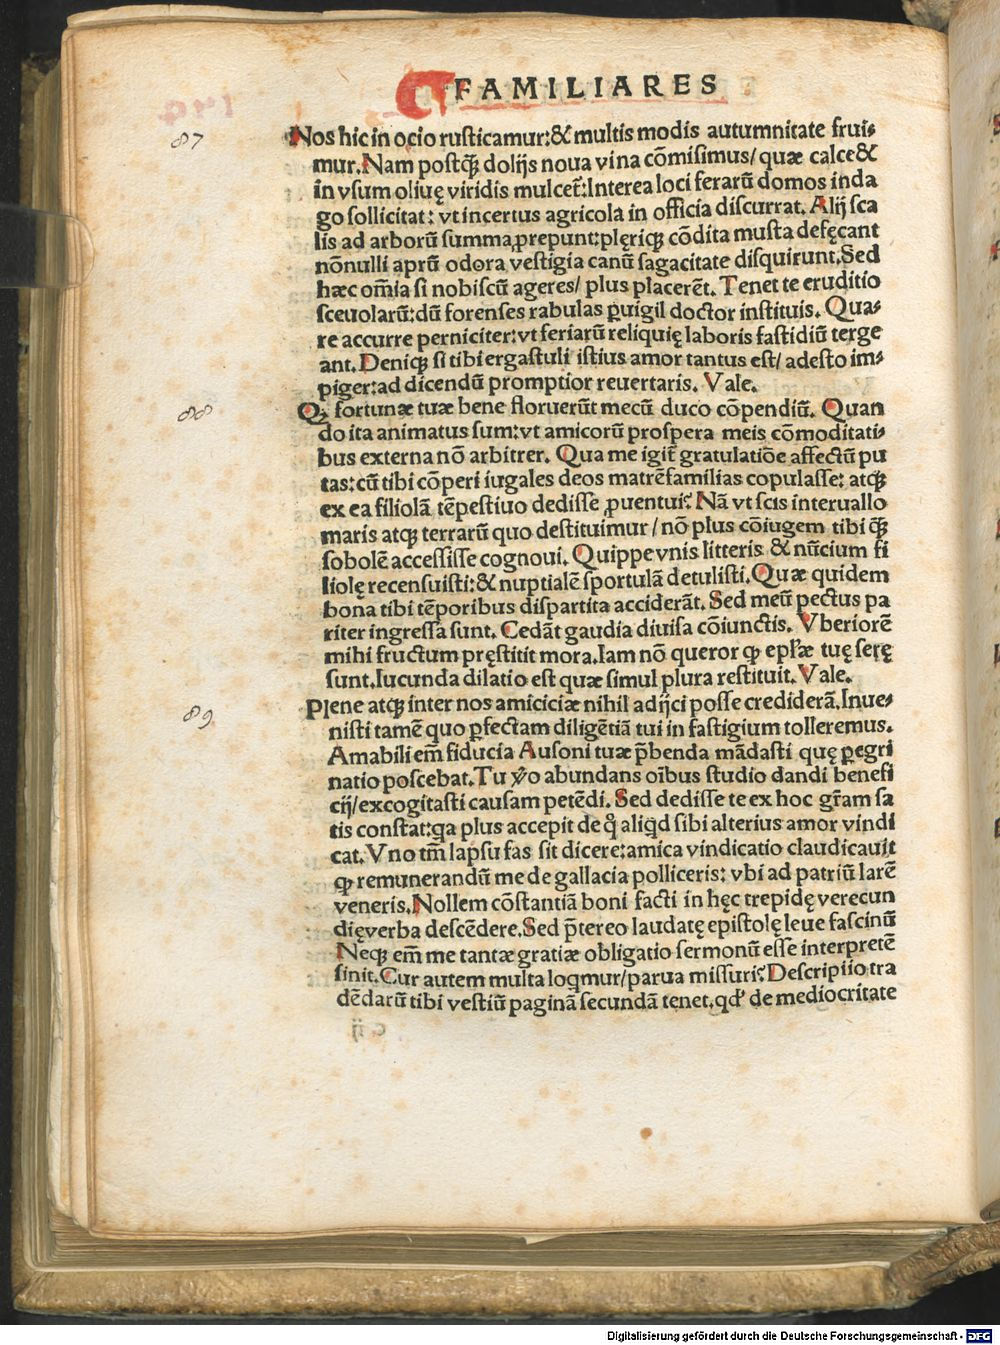 FAMILIARES
87
Nos hic in ocio rusticamur:& multis modis autumnitate frui-
mur.Nam postꝗ̄ dolijs noua vina cōmisimus/ quæ calce &
in vsum oliuę viridis mulcet̄:Interea loci ferarū domos inda
go sollicitat: vt incertus agricola in officia discurrat. Alij sca
lis ad arborū summa ꝓrepunt:plęriqꝫ cōdita musta defęcant
nōnulli aprū odora vestigia canū sagacitate disquirunt.Sed
hæc om̄ia si nobiscū ageres/ plus placerēt. Tenet te eruditio
sceuolarū:dū forenses rabulas ꝑuigil doctor instituis. Qua-
re accurre perniciter:vt feriarū reliquię laboris fastidiū terge
ant.Deniqꝫ si tibi ergastuli istius amor tantus est/ adesto im-
piger:ad dicendū promptior reuertaris. Vale.
88
Qꝫ fortunæ tuæ bene floruerūt mecū duco cōpendiū. Quan
do ita animatus sum:vt amicorū prospera meis cōmoditati-
bus externa nō arbitrer. Qua me igit̄ gratulatiōe affectū pu
tas:cū tibi cōperi iugales deos matrēfamilias copulasse: atqꝫ
ex ea filiolā tēpestiuo dedisse ꝓuentui? Nā vt scis interuallo
maris atqꝫ terrarū quo destituimur / nō plus cōiugem tibi ꝗ̄
sobolē accessisse cognoui. Quippe vnis litteris & nūcium fi
liolę recensuisti:& nuptialē sportulā detulisti.Quæ quidem
bona tibi tēporibus dispartita acciderāt. Sed meū pectus pa
riter ingressa sunt. Cedāt gaudia diuisa cōiunctis. Vberiorē
mihi fructum pręstitit mora.Iam nō queror ꝙ ep̄l̄æ tuę serę
sunt.Iucunda dilatio est quæ simul plura restituit.Vale.
89
Plene atqꝫ inter nos amiciciæ nihil adijci posse crediderā.Inue-
nisti tamē quo ꝑfectam diligētiā tui in fastigium tolleremus.
Amabili em̄ fiducia Ausoni tuæ p̄benda mādasti quę ꝑegri
natio poscebat.Tu v̊o abundans oībus studio dandi benefi
cij/excogitasti causam petēdi. Sed dedisse te ex hoc gr̄am sa
tis constat:qa plus accepit de q̊ aliqd sibi alterius amor vindi
cat.Vno tm̄ lapsu fas sit dicere:amica vindicatio claudicauit
ꝙ remunerandū me de gallacia polliceris: vbi ad patriū larē
veneris.Nollem cōstantiā boni facti in hęc trepidę verecun
dię verba descēdere.Sed p̄tereo laudatę epistolę leue fascinū
Neqꝫ em̄ me tantæ gratiæ obligatio sermonū esse interpretē
sinit.Cur autem multa loqmur/parua missuri? Descriptio tra
dēdarū tibi vestiū paginā secundā tenet.qd̕ de mediocritate
Digitalisierung gefördert durch die Deutsche Forschungsgemeinschaft - DFG